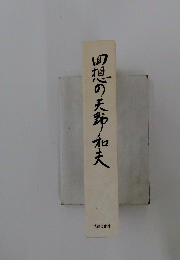 回想の天野和夫